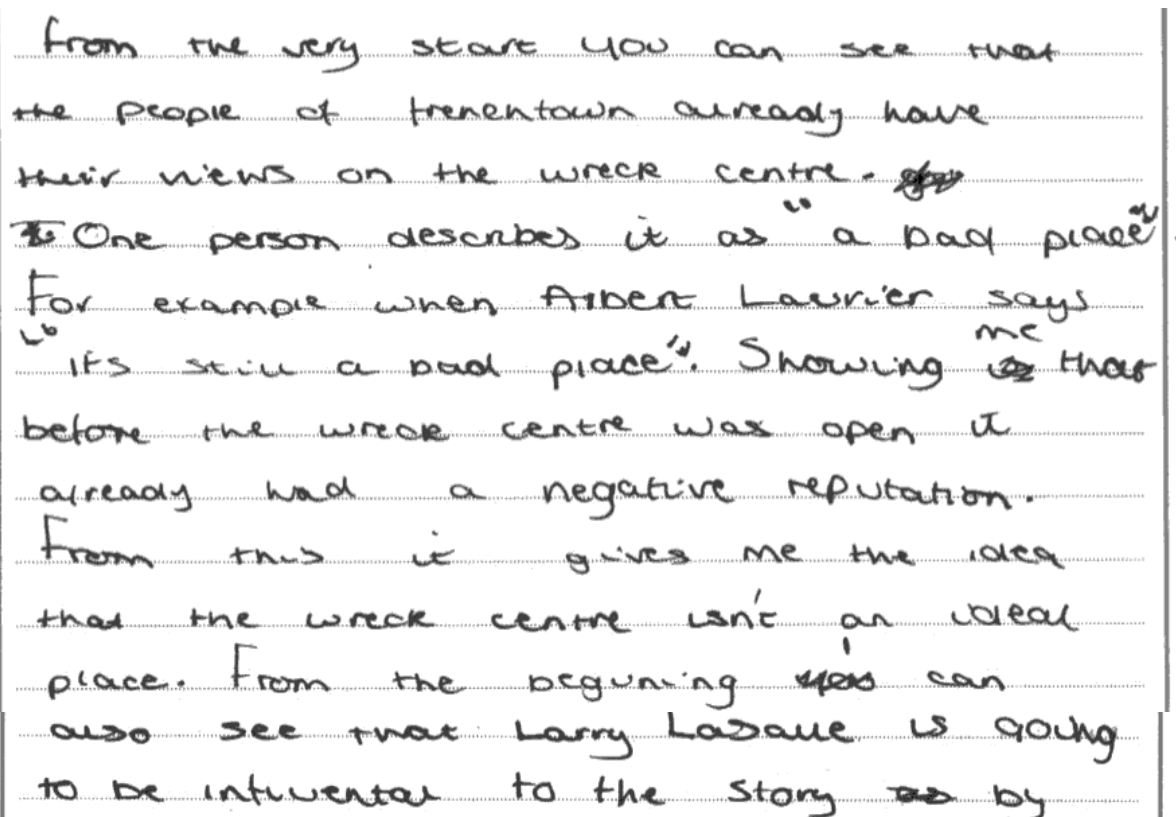 From the very start you can see that
the people of frenentown already have
their views on the wreck centre.
One person describes it as "a bad place"
For example when Albert Laurier says
"it's still a bad place". Showing me that
before the wreck centre was open it
already had a negative reputation.
From this it gives me the idea
that the wreck centre isn't an ideal
place. From the beguning I can
also see that Larry Lasalle is going
to be intluental to the story by